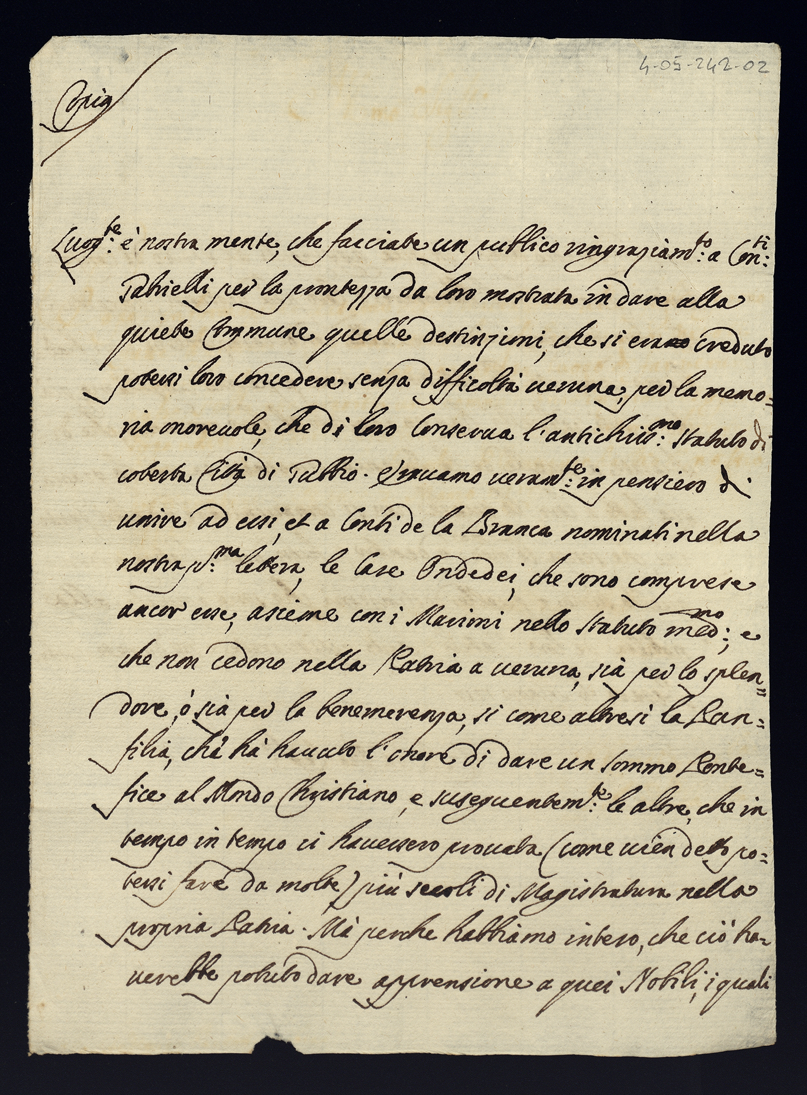 4-05-242-02
Copia
Luogte: è nostra mente, che facciate un publico ringraziamto: a Conti:
Gabrielli per la prontezza da loro mostrata in dare alla
quiete Commune quelle destinzioni, che si era creduto
potersi loro concedere senza difficoltà veruna, per la memo=
ria onorevole, che di loro Conserva l'antichissmo: statuto di
coteста Città di Gubbio. Eravamo veramte: in pensiero di
unire ad essi, et a Conti de la Branca nominati nella
nostra pma: lettera, le Case Ondedei, che sono comprese
ancor esse, assieme con i Marioni nello statuto medmo:, e
che non cedono nella Patria a veruna, sià per lo splen=
dore, ò sià per la benemerenza, si come altresì la Pan=
filia, chà hà havuto l'onore di dare un sommo Ponte=
fice al Mondo Christiano, e suseguentemte: le altre, che in
tempo in tempo ci havessero provata (come vien detto po=
tersi fare da molte) più secoli di Magistratura nella
propria Patria. Mà perche habbiamo inteso, che ciò ha=
verebbe potuto dare apprensione a quei Nobili, i quali